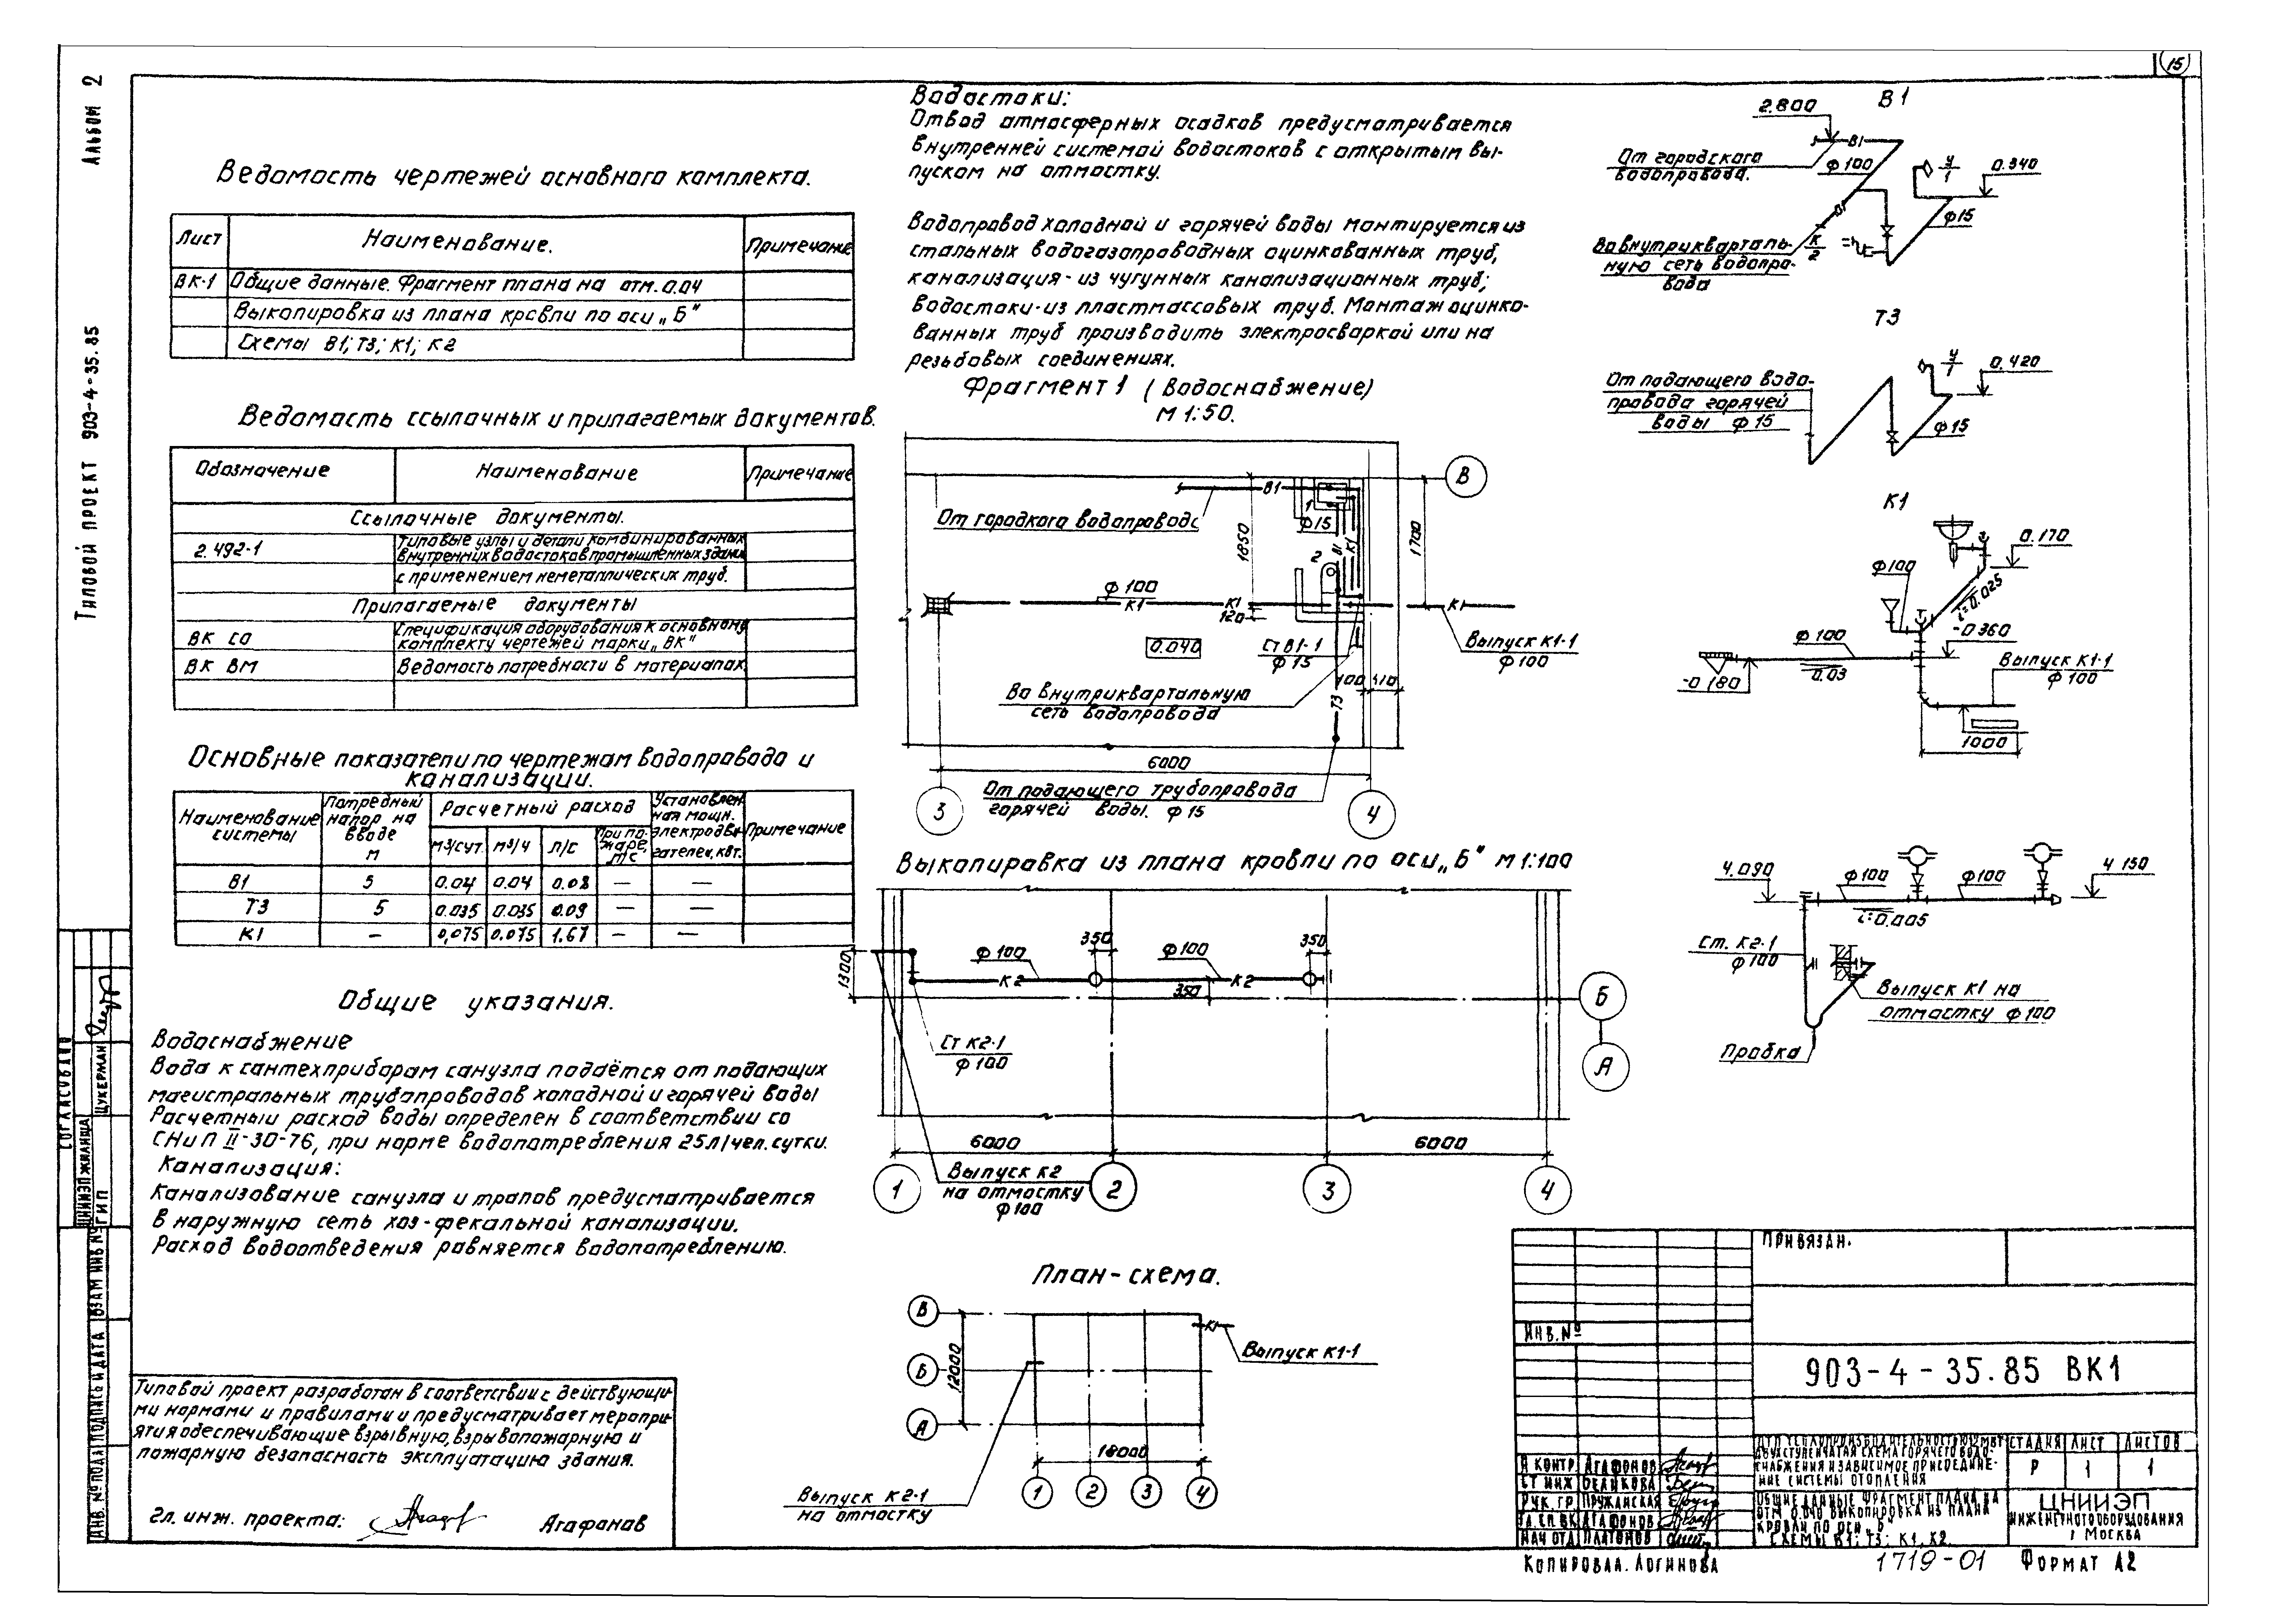 15
Альбом 2
Типовой проект 903-4-35.85
Ведомость чертежей основного комплекта.
Лист Наименование. Примечание
ВК-1 Общие данные. Фрагмент плана на отм. 0.04
Выкопировка из плана кровли по оси „Б"
Схемы В1; Т3; К1; К2
Ведомость ссылочных и прилагаемых документов.
Обозначение Наименование Примечание
Ссылочные документы.
2.492-1 Типовые узлы и детали комбинированных
внутренних водостоков промышленных здани
с применением неметаллических труб.
Прилагаемые документы
ВК СО Спецификация оборудования к основному
комплекту чертежей марки „ВК"
ВК ВМ Ведомость потребности в материалах
Основные показатели по чертежам водопровода и
канализации.
Наименование системы
Потребный напор на вводе м
Расчетный расход
м3/сут. м3/ч л/с При пожаре, л/с
Установлен-
ная мощн.
электродви-
гателей, квт.
Примечание
В1 5 0.04 0.04 0.08 — —
Т3 5 0.035 0.035 0.09 — —
К1 — 0,075 0.075 1.67 — —
Общие указания.
Водоснабжение
Вода к сантехприборам санузла подаётся от подающих
магистральных трубопроводов холодной и горячей воды
Расчетный расход воды определен в соответствии со
СНиП II-30-76, при норме водопотребления 25л/чел.сутки.
Канализация:
Канализование санузла и трапов предусматривается
в наружную сеть хоз-фекальной канализации.
Расход водоотведения равняется водопотреблению.
Типовой проект разработан в соответствии с действующи-
ми нормами и правилами и предусматривает меропри-
ятия обеспечивающие взрывную, взрывопожарную и
пожарную безопасность эксплуатацию здания.
Гл. инж. проекта: Агафонов
Водостоки:
Отвод атмосферных осадков предусматривается
внутренней системой водостоков с открытым вы-
пуском на отмостку.
Водопровод холодной и горячей воды монтируется из
стальных водогазопроводных оцинкованных труб,
канализация - из чугунных канализационных труб;
водостоки - из пластмассовых труб. Монтаж оцинко-
ванных труб производить электросваркой или на
резьбовых соединениях.
Фрагмент 1 (Водоснабжение)
М 1:50.
В
В1
От городкого водопровода
1
ф15
1850
1700
2
В1
К1
ф 100
К1
К1
120
К1
0.040
Ст В1-1
ф 15
Выпуск К1-1
ф 100
100 410
Во внутриквартальную
сеть водопровода
Т3
6000
3
От подающего трубопровода
горячей воды. ф 15
4
Выкопировка из плана кровли по оси „Б" М 1:100
350
350
1300
ф 100
К2
ф 100
К2
350
Б
А
Ст К2-1
ф 100
6000
6000
1
Выпуск К2
на отмостку
ф 100
2
3
4
План-схема.
В
Б
А
12000
К1
Выпуск К1-1
18000
1 2 3 4
Выпуск К2-1
на отмостку
В1
2.800
В1
От городского
водопровода.
ф 100
У
1
0.340
ф15
Во внутрикварталь-
ную сеть водопро-
вода
К
2
Т3
От подающего водо-
провода горячей
воды ф 15
У
1
0.420
ф 15
К1
0.170
ф100
i=0.025
-0360
ф 100
-0 180
0.03
Выпуск К1-1
ф 100
1000
4.090
4 150
ф100
ф100
i=0.005
Ст. К2-1
ф 100
Выпуск К1 на
отмостку ф 100
Пробка
Привязан.
Инв. №
903-4-35.85 ВК1
Н контр Агафонов
Ст инж Беликова
Рук. гр Пружанская
Гл. сп. ВК Агафонов
Нач отд Платонов
двухступенчатая схема горячего водо-
снабжения независимое присоедине-
ние системы отопления
Стадия Лист Листов
Р 1 1
Общие данные Фрагмент плана на
отм 0.040 Выкопировка из плана
кровли по оси „Б"
Схемы В1; Т3; К1, К2.
ЦНИИЭП
инженерного оборудования
г Москва
Копировал. Логинова
1719-01
Формат А2
Согласовано
ЦНИИЭПжилища
ГИП Цукерман
Взам инв №
Подпись и дата
Инв. № подл